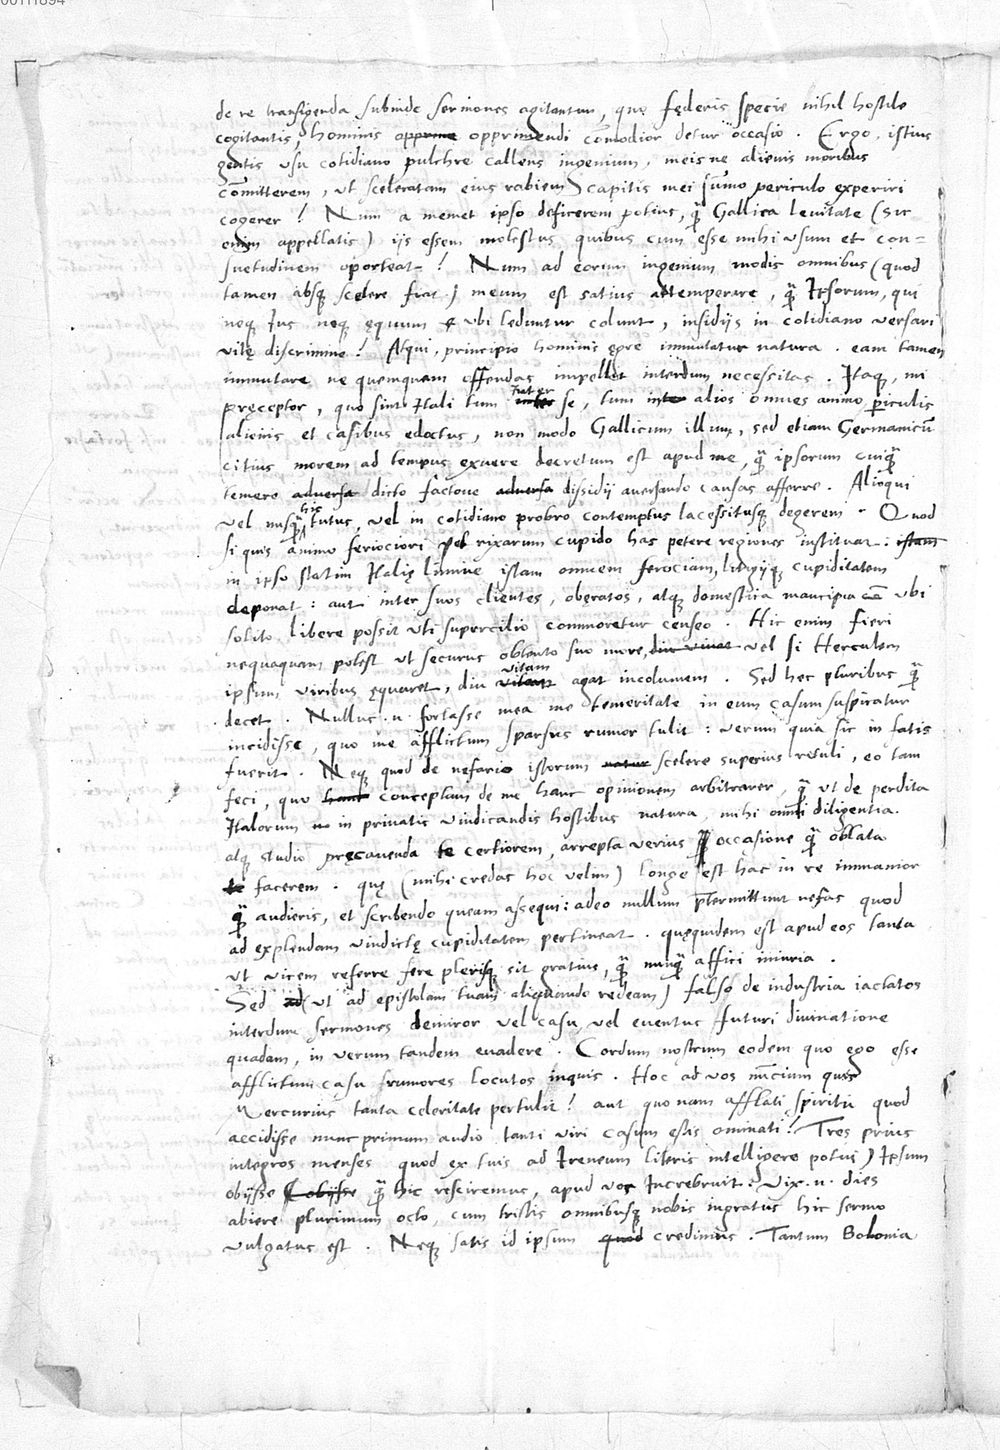 00111894
de re transigenda subinde sermones agitantur, quę fęderis specie nihil hostile
cogitantis, hominis opprime opprimendi com̃odior detur occasio. Ergo, istius
gentis usu cotidiano pulchre callens ingenium, meis ne alienis moribus
com̃itterem, ut sceleratam eius rabiem capitis mei sum̃o periculo experiri
cogerer! Num a memet ipso deficerem potius, q̃ Gallica levitate (sic
enim appellatis) iis essem molestus quibus cum esse mihi usum et con=
suetudinem oporteat! Num ad eorum ingenium modis omnibus (quod
tamen absq̨ scelere fiat) meum est satius attemperare, q̃ Ipsorum, qui
neq̨ Ius neq̨ ęquum ubi leduntur colunt, insidijs in cotidiano versari
vitę discrimine! Atqui, principio hominis ęgre immutatur natura. eam tamen
immutare ne quemquam offendas impellit interdum necessitas. Itaq̨, mi
pręceptor, quo sint Itali tum inter se, tum inte alios omnes animo, periculis
alienis et casibus edoctus, non modo Gallicum illum, sed etiam Germanicũ
citius morem ad tempus exuere decretum est apud me, q̃ ipsorum cuiq̃
temere adversa dicto factove adversa dissidij aversando causas afferre. Alioqui
vel nusq̃ hic tutus, vel in cotidiano probro contemptus lacessitusq̨ degerem. Quod
si quis animo feriociori vel rixarum cupido has petere regiones instituat: istam
in ipso statim Italię limine istam omnem ferociam, litigijq̨ cupiditatem
deponat: aut inter suos clientes, obęratos, atq̨ domestica mancipia ubi
solito libere possit uti supercilio commoretur censeo. Hic enim fieri
nequaquam potest ut securus obtento suo more, diu vivat vel si Herculem
ipsum viribus ęquaret, diu vitam vitam agat incolumem. Sed hec pluribus q̃
decet. Nullus .n. fortasse mea me temeritate in eum casum suspicatur
incidisse, quo me afflictum sparsus rumor tulit: verum quia sic in fatis
fuerit. Neq̨ quod de nefario istorum natur scelere superius retuli, eo tam
feci, quo hanc conceptam de me hanc opinionem arbitrarer, q̃ ut de perdita
Italorum in privatis vindicandis hostibus natura, mihi omni diligentia
atq̨ studio pręcavenda te certiorem, arrepta verius occasione q̃ oblata
te facerem. quę (mihi credas hoc velim) longe est hac in re immanior
q̃ audieris, et scribendo queam assequi: adeo nullum prętermittunt nefas quod
ad explendam vindictę cupiditatem pertineat. quęquidem est apud eos tanta
ut vicem referre fere plerisq̨ sit gratius, q̃ nunq̃ affici iniuria.
Sed ad (ut ad epistolam tuam aliquando redeam) falso de industria iactatos
interdum sermones demiror vel casu vel eventus futuri divinatione
quadam, in verum tandem evadere. Cordum nostrum eodem quo ego esse
afflictum casu frumores locutos inquis. Hoc ad vos nuncium quis
Mercurius tanta celeritate pertulit? aut quo nam afflati spiritu quod
accidisse nunc primum audio, tanti viri casum estis ominati! Tres prius
integros menses quod ex tuis ad Ireneum literis intelligere potui) Ipsum
obijsse obijsse q̃ hic resciremus, apud vos Increbruit. Vix .n. dies
abiere plurimum octo, cum tristis omnibusq̨ nobis ingratus hic sermo
vulgatus est. Neq̨ satis id ipsum quod credimus. Tantum Bolonia